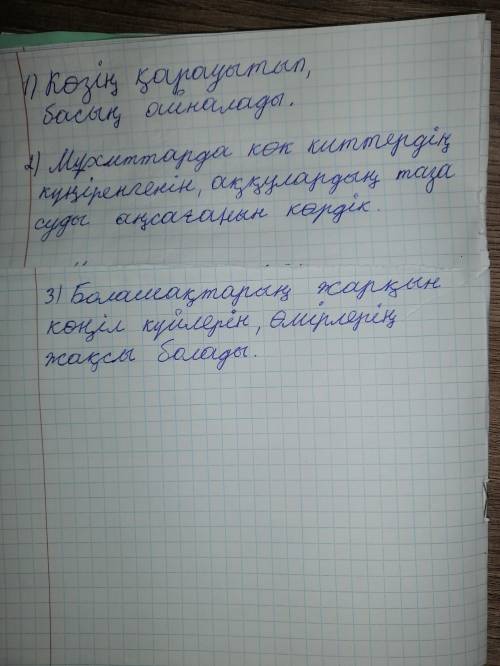 1) Көзің қарауытып,
басың айналады.
2) Мұхиттарда көк киттердің
күңіренгенін, аққулардың таза
суды аңсағанын көрдік.
3) Болашақтарың жарқын
көңіл күйлерің, өмірлерің
жақсы болады.